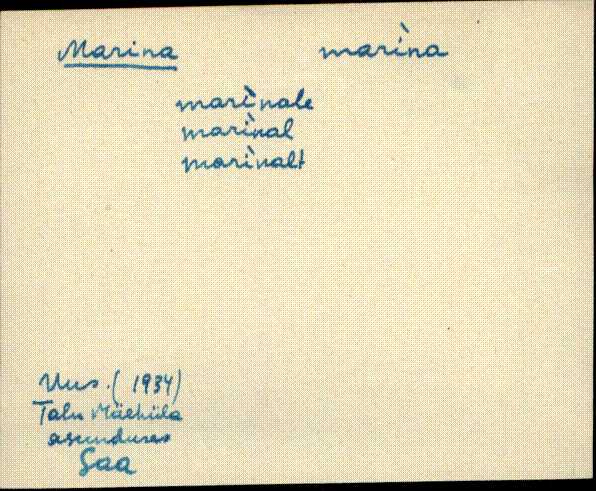 Marina marìna
marìnale
marìnal
marìnalt
Uus. (1934)
Talu Mäeküla
asunduses
Saa